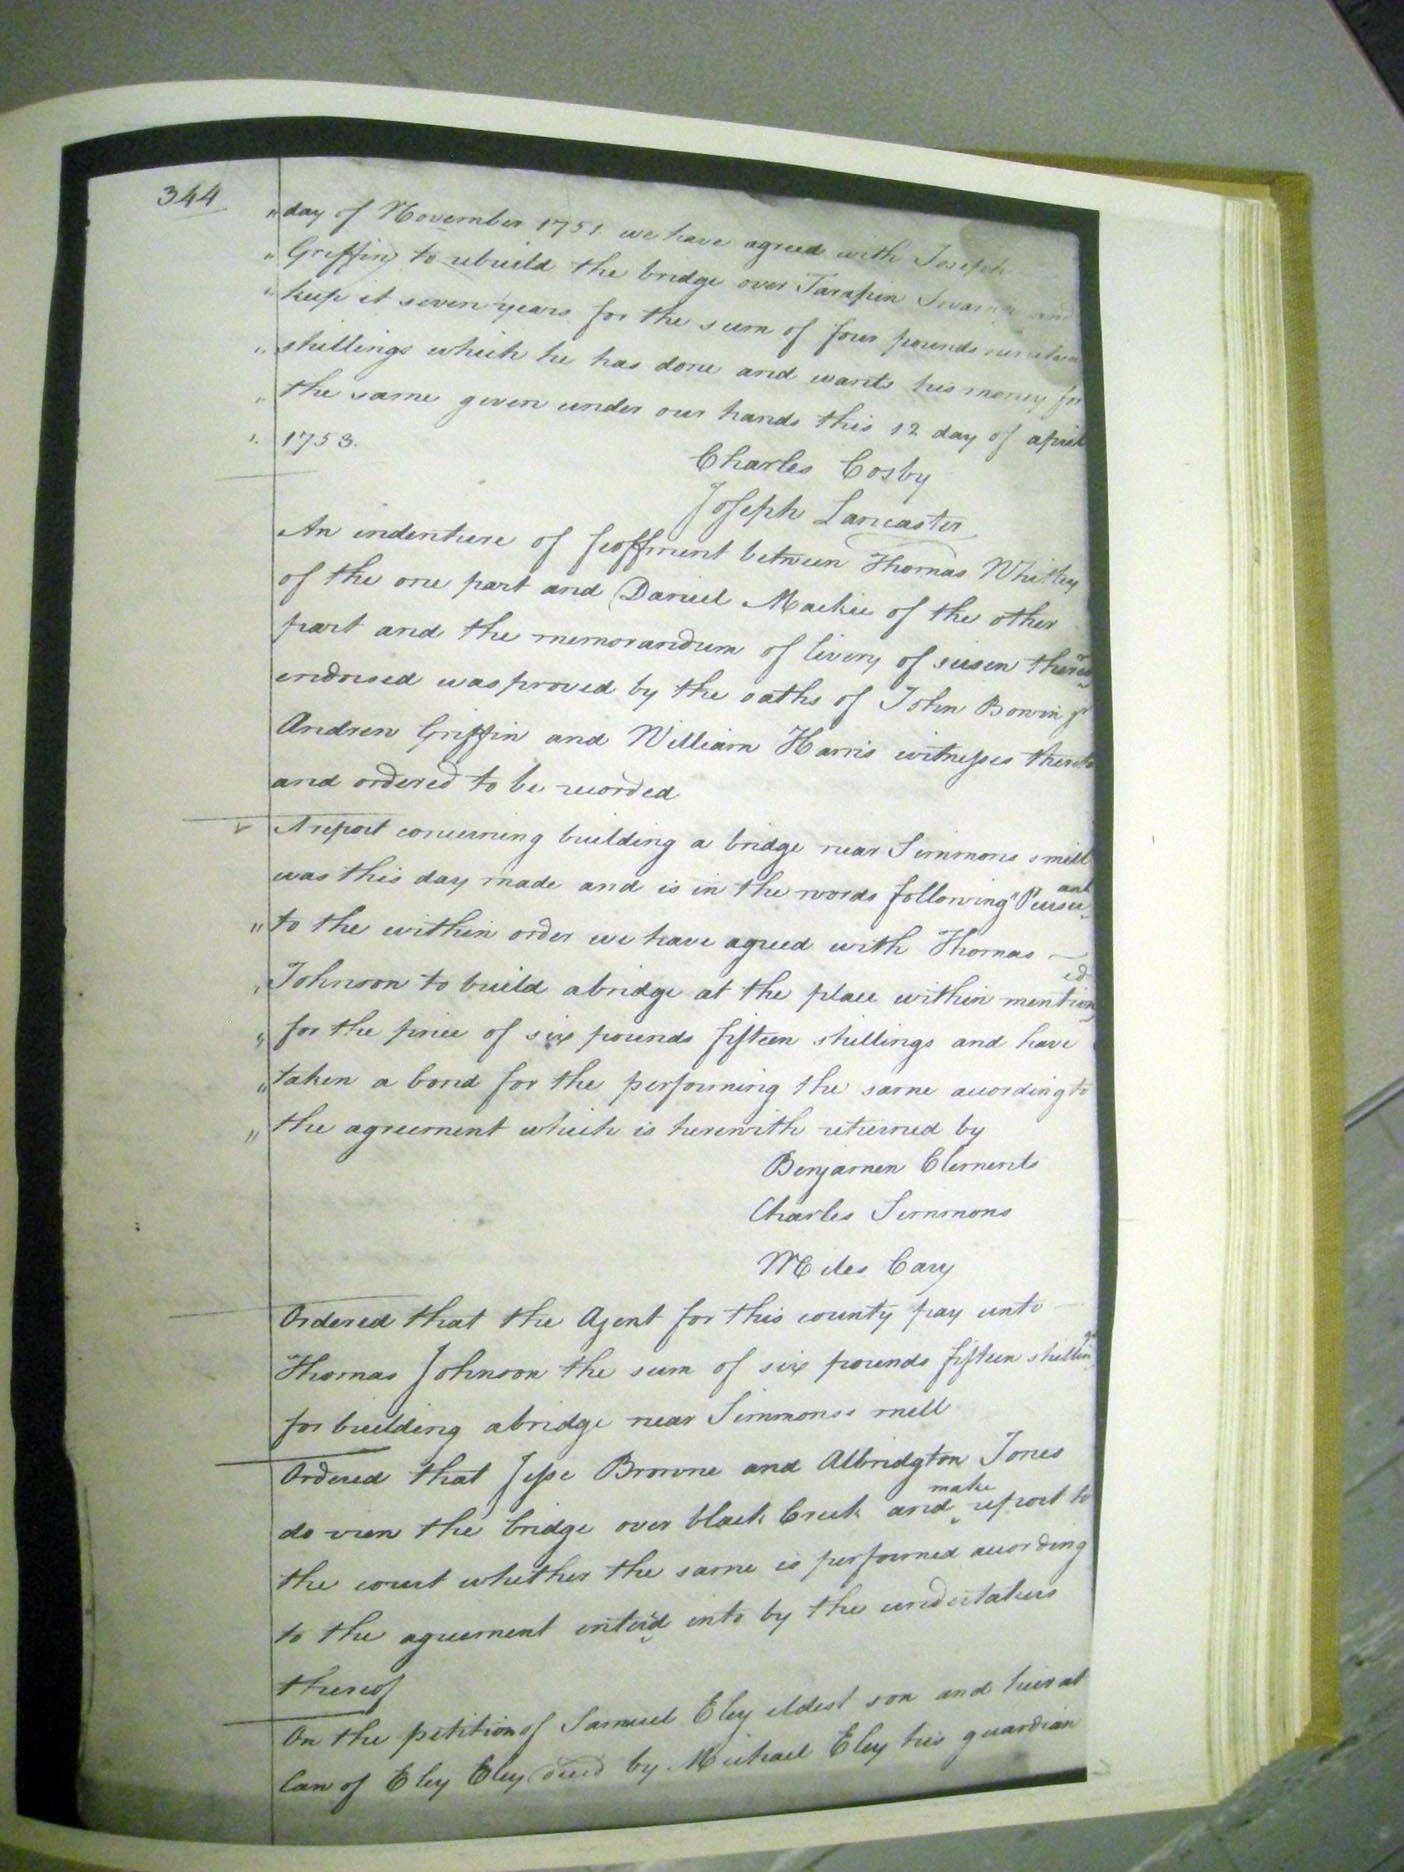 344
" day of November 1751 we have agreed with Joseph
" Griffin to rebuild the bridge over Tarapin Swamp and
" keep it seven years for the sum of four pounds
" shillings which he has done and wants his money for
" the same given under our hands this 12 day of april
" 1753.
Charles Cosby
Joseph Lancaster
An indenture of feoffment between Thomas Whitley
of the one part and Daniel Mackie of the other
part and the memorandum of livery of seisen thereon
endorsed was proved by the oaths of John Bowin
Andrew Griffin and William Harris witnesses thereto
and ordered to be recorded
A report concerning building a bridge near Simmons s mill
was this day made and is in the words following "Pursuant
" to the within order we have agreed with Thomas
" Johnson to build a bridge at the place within mentioned
" for the price of six pounds fifteen shillings and have
" taken a bond for the performing the same according to
" the agreement which is herewith returned by
Benjamen Clements
Charles Simmons
Miles Cary
Ordered that the Agent for this county pay unto
Thomas Johnson the sum of six pounds fifteen shillings
for building a bridge near Simmonss mill
Ordered that Jesse Browne and Albridgton Jones
do view the bridge over black Creek and make report to
the court whether the same is performed according
to the agreement enter'd into by the undertakers
thereof
On the petition of Samuel Eley eldest son and heir at
law of Eley Eley dec'd by Michael Eley his guardian